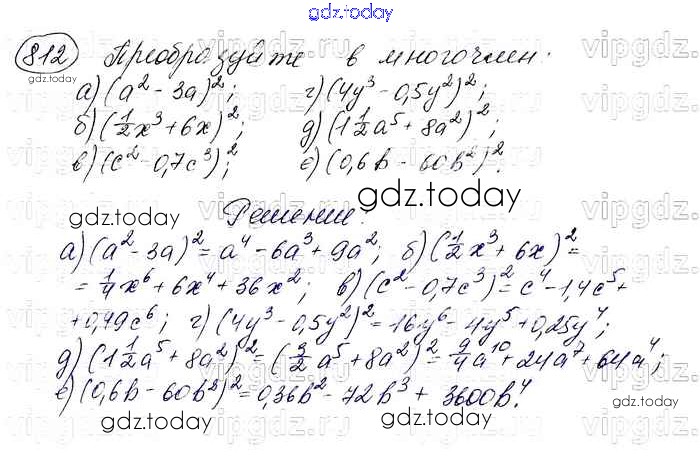 gdz.today
812 Преобразуйте в многочлен:
а) (a² - 3a)²; г) (4y³ - 0,5y²)²;
б) (1/2x³ + 6x)²; д) (1 1/2a⁵ + 8a²)²;
в) (c² - 0,7c³)²; е) (0,6b - 60b²)².
Решение:
а) (a² - 3a)² = a⁴ - 6a³ + 9a²; б) (1/2x³ + 6x)² =
= 1/4x⁶ + 6x⁴ + 36x²; в) (c² - 0,7c³)² = c⁴ - 1,4c⁵ +
+ 0,49c⁶; г) (4y³ - 0,5y²)² = 16y⁶ - 4y⁵ + 0,25y⁴;
д) (1 1/2a⁵ + 8a²)² = (3/2a⁵ + 8a²)² = 9/4a¹⁰ + 24a⁷ + 64a⁴;
е) (0,6b - 60b²)² = 0,36b² - 72b³ + 3600b⁴.
gdz.today
gdz.today
gdz.today
gdz.today
gdz.today
gdz.today
gdz.today
vipgdz.ru